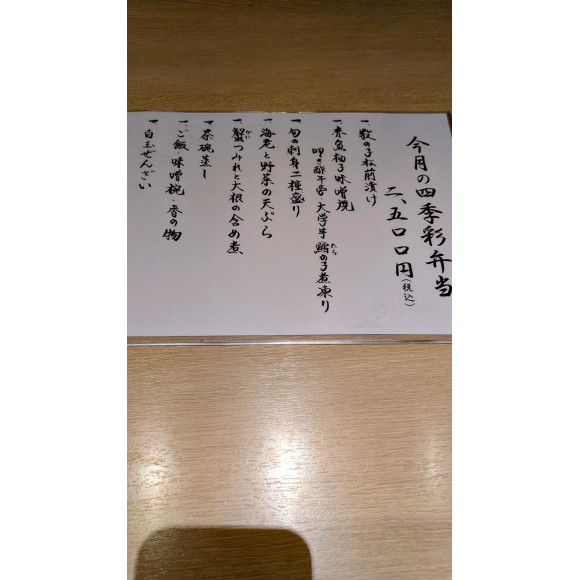 今月の四季彩弁当
二、五〇〇円(税込)
一、数の子松前漬け
一、赤魚柚子味噌焼
叩き酢牛蒡・大学芋・鱈の子煮凍り
たら
一、旬の刺身二種盛り
一、海老と野菜の天ぷら
一、蟹つみれと大根の含め煮
かに
一、茶碗蒸し
一、ご飯・味噌椀・香の物
一、白玉ぜんざい